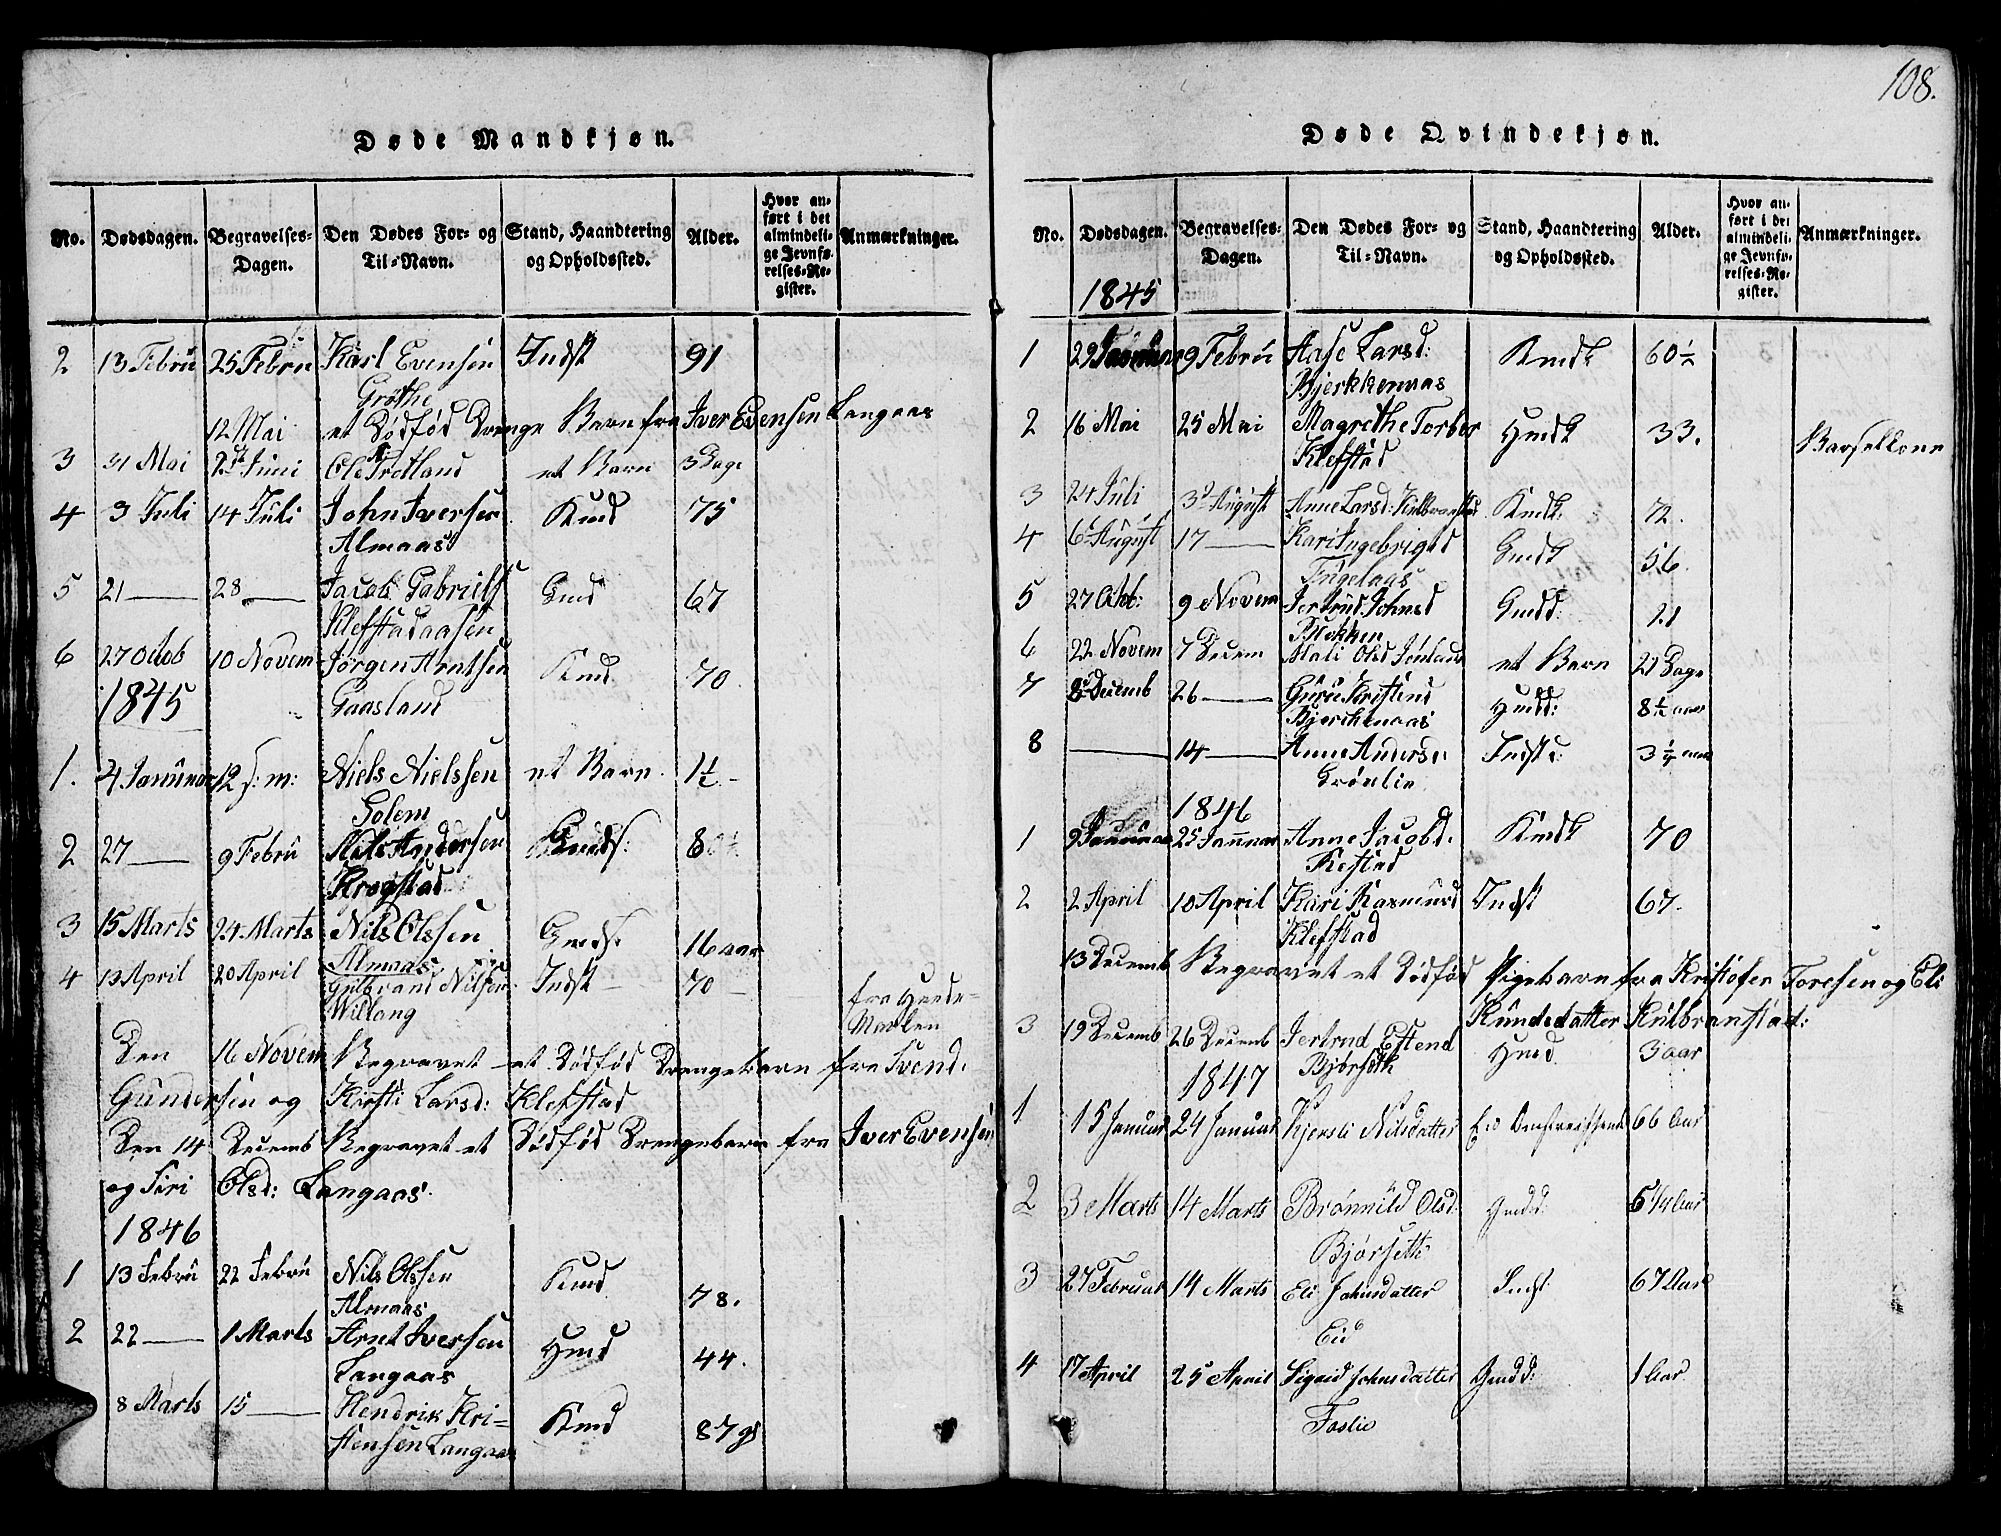 108.
Døde Mandkjøn.
No. Dødsdagen. Begravelses-Dagen. Den Dødes For- og Til-Navn. Stand, Haandtering og Opholdssted. Alder. Hvor anført i det almindelige Jevnførelses-Register. Anmærkninger.
2 13 Febru 25 Febru Karl Evensen Indst 91
Grøthe
12 Mai et Dødfød Drenge Barn fra Iver Evensen Langaas
3 31 Mai 2 Juni Ole Tretland et Barn 3 Dage
4 3 Juli 14 Juli John Iversen Kmd 75
Almaas
5 21 — 28 — Jacob Gabriels Gmd 67
Klefstadaasen
6 27 Octob 10 Novem Jørgen Arntsen Kmd 70
1845 Gaasland
1. 4 Januuar 12 s: m: Niels Nielssen et Barn 1½
Golem
2 27 — 9 Febru Nils Andersen 80½
Krogstad
3 15 Marts 24 Marts Nils Olssen Gmds. 16 aar
Almaas
4 13 April 20 April Gulbrand Nilsen Indst 70 fra Hede-
Willang Marken
Den 16 Novem Begravet et Dødfød Drengebarn fra Svend
Gundersen og Kirsti Larsd: Klefstad
Den 14 Decemb Begravet et Dødfød Drengebarn fra Iver Evensen
og Siri Olsd: Langaas.
1846
1 13 Febru 22 Febru Nils Olssen Kmd 78.
Almaas
2 22 — 1 Marts Arnt Iversen Hmd 44.
Langaas
8 Marts 15 — Hendrik Kri- Kmd 87
stensen Langaas
Døde Qvindekjøn.
No. Dødsdagen. Begravelses-Dagen. Den Dødes For- og Til-Navn. Stand, Haandtering og Opholdssted. Alder. Hvor anført i det almindelige Jevnførelses-Register. Anmærkninger.
1845
1 29 Januuar 9 Febru Aase Larsd: Kmdk 60½
Bjerkkenaas
2 16 Mai 25 Mai Magrethe Torber Hmdk 33. Barselkone
Klefstad
3 24 Juli 3 August Anne Larsd: Kulbranstad Kmdk: 72.
4 6 August 17 — Kari Ingebrigtsd Gmdk 56.
Engelaas
5 27 Okb: 9 Novem Jertrud Johnsd Gmdd: 21
Bækken
6 22 Novem 7 Decem Mali Olsd et Barn 21 Dage
7 8 Decemb 26 — Guru Kristensd Hmdd: 8½ aar
Bjerckenaas
8 — 14 — Anne Anders: Indstd: 3¼ aar
Grønlie
1846
1 9 Januuar 25 Januuar Anne Jacobd. Kmdk 70
Kestad
2 2 April 10 April Kari Rasmusd Indst 67.
Klefstad
13 Decemb Begravet et Dødfød Pigebarn fra Kristofer Toresen og Eli
Kundedatter Kulbranstad:
3 19 Decemb 26 Decemb Jertrud Estend Hmd 3 aar
Bjørseth
1847
1 15 Januar 24 Januar Kjersti Nilsdatter 66 Aar
2 3 Marts 14 Marts Brønnild Olsd. Gmdd: 5 1/4 Aar
Bjørseth
3 27 Februar 14 Marts Eli Johnsdatter Indst 67 Aar
Eid
4 17 April 25 April Sigrid Johnsdatter Gmdd: 1 Aar
Foslie